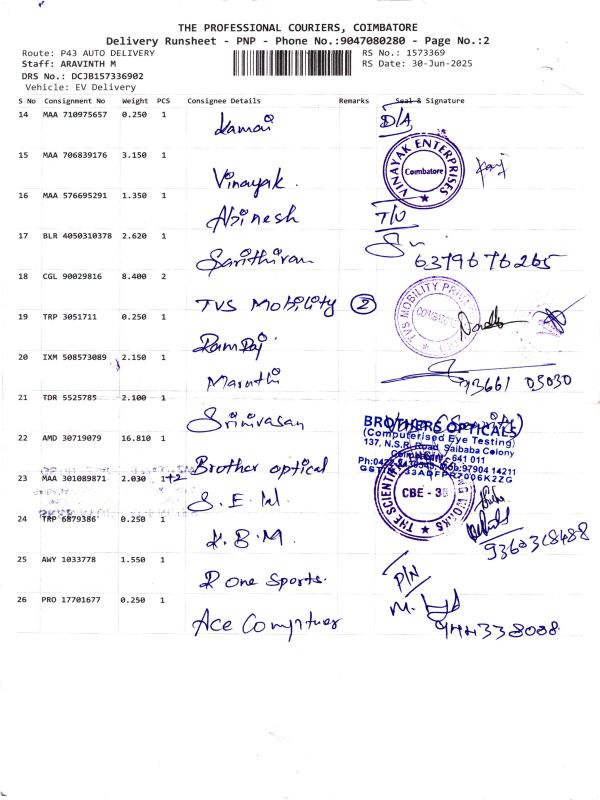 THE PROFESSIONAL COURIERS, COIMBATORE
Delivery Runsheet - PNP - Phone No.:9047080280 - Page No.:2
Route: P43 AUTO DELIVERY RS No.: 1573369
Staff: ARAVINTH M RS Date: 30-Jun-2025
DRS No.: DCJB157336902
Vehicle: EV Delivery
S No Consignment No Weight PCS Consignee Details Remarks Seal & Signature
14 MAA 710975657 0.250 1 Kamal D/A
15 MAA 706839176 3.150 1 Vinayak.
VINAYAK ENTERPRISES
Coimbatore
16 MAA 576695291 1.350 1 Abinesh T/U
17 BLR 4050310378 2.620 1 Sarithiran 6379676265
18 CGL 90029816 8.400 2 TVS Mobility 2
TVS MOBILITY
19 TRP 3051711 0.250 1 Ramraj
20 IXM 508573089 2.150 1 Maruthi 93661 05030
21 TDR 5525785 2.100 1 Srinivasan
22 AMD 30719079 16.810 1 Brother optical
BROTHERS OPTICALS
(Computerised Eye Testing)
137, N.S.R. Road, Saibaba Colony
Coimbatore - 641 011
23 MAA 301089871 2.030 1+2 S.E.W.
THE SCIENTIFIC
WORKS
CBE - 38
24 TRP 6879386 0.250 1 K.B.M. 9360328488
25 AWY 1033778 1.550 1 R one Sports. P/N
26 PRO 17701677 0.250 1 Ace Computer M.